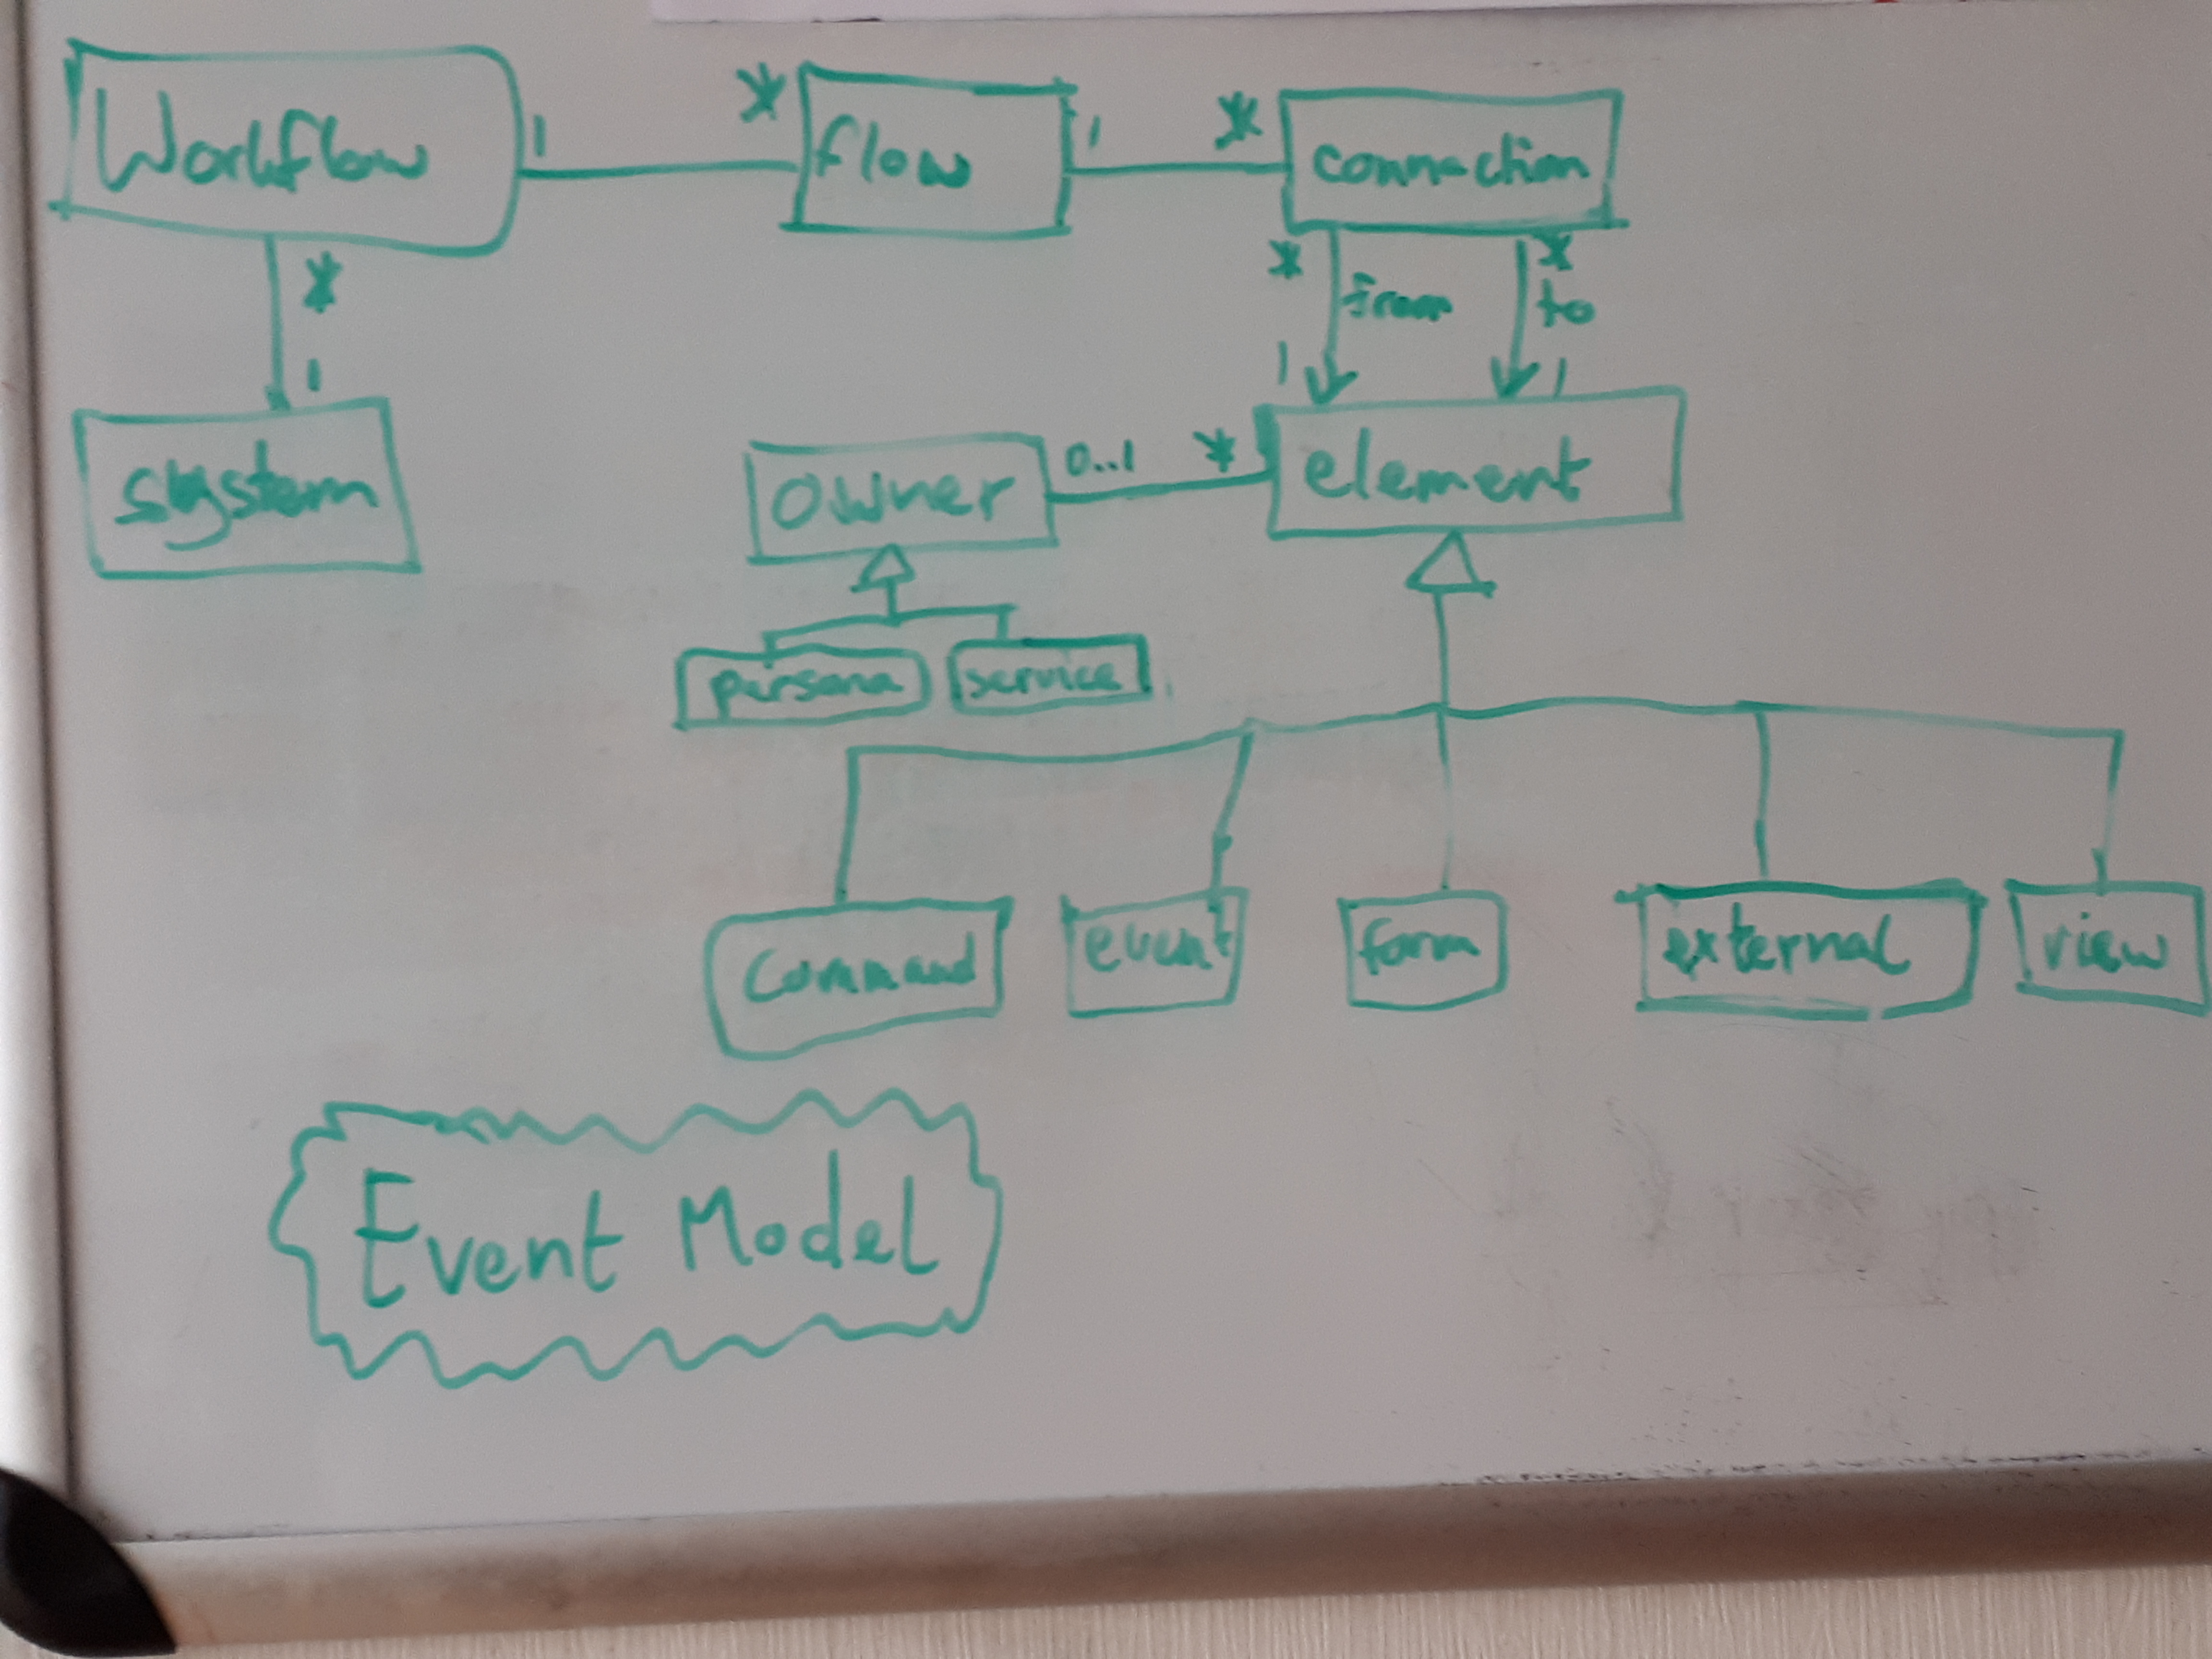 Workflow 1 * flow 1 * connection
* * from * to
1 1 1
system owner 0..1 * element
persona service
command event form external view
Event Model